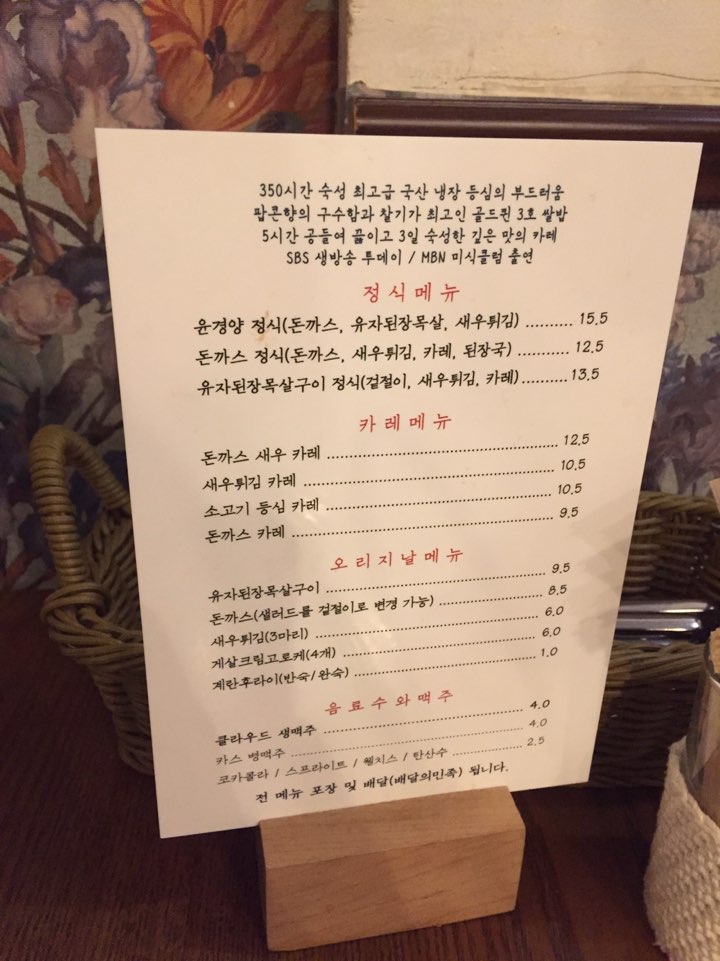 350시간 숙성 최고급 국산 냉장 등심의 부드러움
팝콘향의 구수함과 찰기가 최고인 골드퀸 3호 쌀밥
5시간 공들여 끓이고 3일 숙성한 깊은 맛의 카레
SBS 생방송 투데이 / MBN 미식클럽 출연
정식메뉴
윤경양 정식(돈까스, 유자된장목살, 새우튀김) .......... 15.5
돈까스 정식(돈까스, 새우튀김, 카레, 된장국) .......... 12.5
유자된장목살구이 정식(겉절이, 새우튀김, 카레) .......... 13.5
카레메뉴
돈까스 새우 카레 .......... 12.5
새우튀김 카레 .......... 10.5
소고기 등심 카레 .......... 10.5
돈까스 카레 .......... 9.5
오리지날메뉴
유자된장목살구이 .......... 9.5
돈까스(샐러드를 겉절이로 변경 가능) .......... 8.5
새우튀김(3마리) .......... 6.0
게살크림고로케(4개) .......... 6.0
계란후라이(반숙/완숙) .......... 1.0
음료수와맥주
클라우드 생맥주 .......... 4.0
카스 병맥주 .......... 4.0
코카콜라 / 스프라이트 / 웰치스 / 탄산수 .......... 2.5
전 메뉴 포장 및 배달(배달의민족) 됩니다.